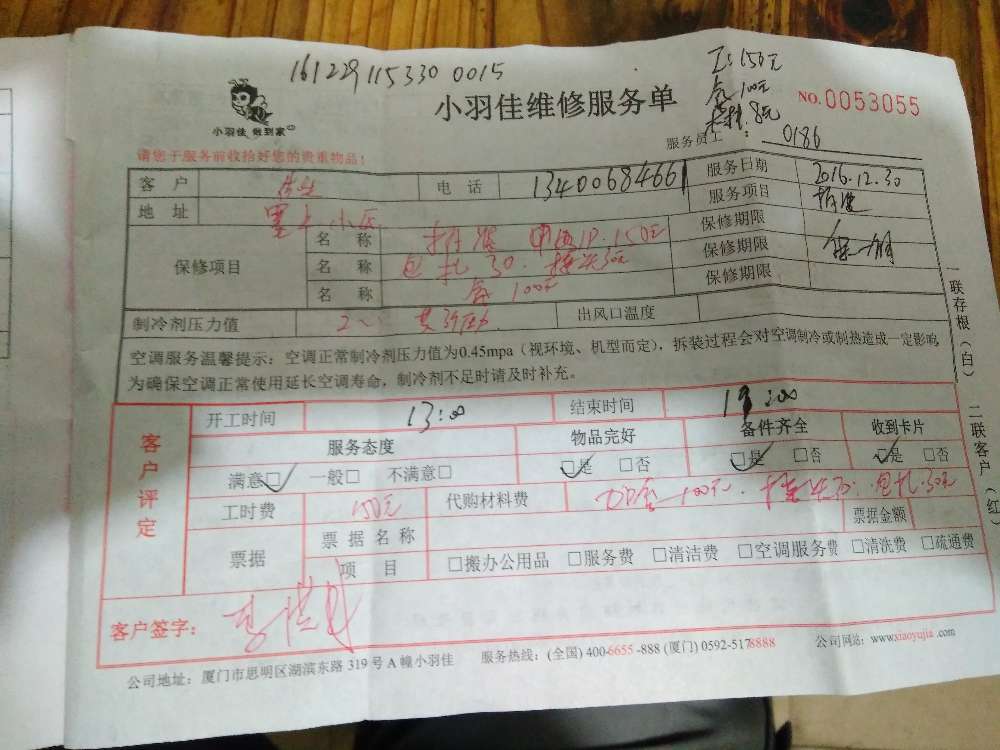 161229115330 0015
工:150元
氟100元
8元
小羽佳 做到家
小羽佳维修服务单
NO.0053055
服务员工: 0186
请您于服务前收拾好您的贵重物品!
客户 电话 13400684661 服务日期 2016.12.30
地址 小区 服务项目
保修项目 名称 1P.150元 保修期限
名称 包扎30.接头30元 保修期限 保一个月
名称 氟100元 保修期限
制冷剂压力值 出风口温度
空调服务温馨提示:空调正常制冷剂压力值为0.45mpa(视环境、机型而定),拆装过程会对空调制冷或制热造成一定影响,
为确保空调正常使用延长空调寿命,制冷剂不足时请及时补充。
客户评定
开工时间 13:00 结束时间
服务态度 物品完好 备件齐全 收到卡片
满意□ 一般□ 不满意□ □是 □否 □是 □否 □是 □否
工时费 150元 代购材料费 加氟100元.接头30.包扎30元
票据 票据名称 票据金额
项目 □搬办公用品 □服务费 □清洁费 □空调服务费 □清洗费 □疏通费
客户签字:
公司地址:厦门市思明区湖滨东路319号A幢小羽佳 服务热线:(全国)400-6655-888(厦门)0592-5178888 公司网站:www.xiaoyujia.com
一联存根(白) 二联客户(红)